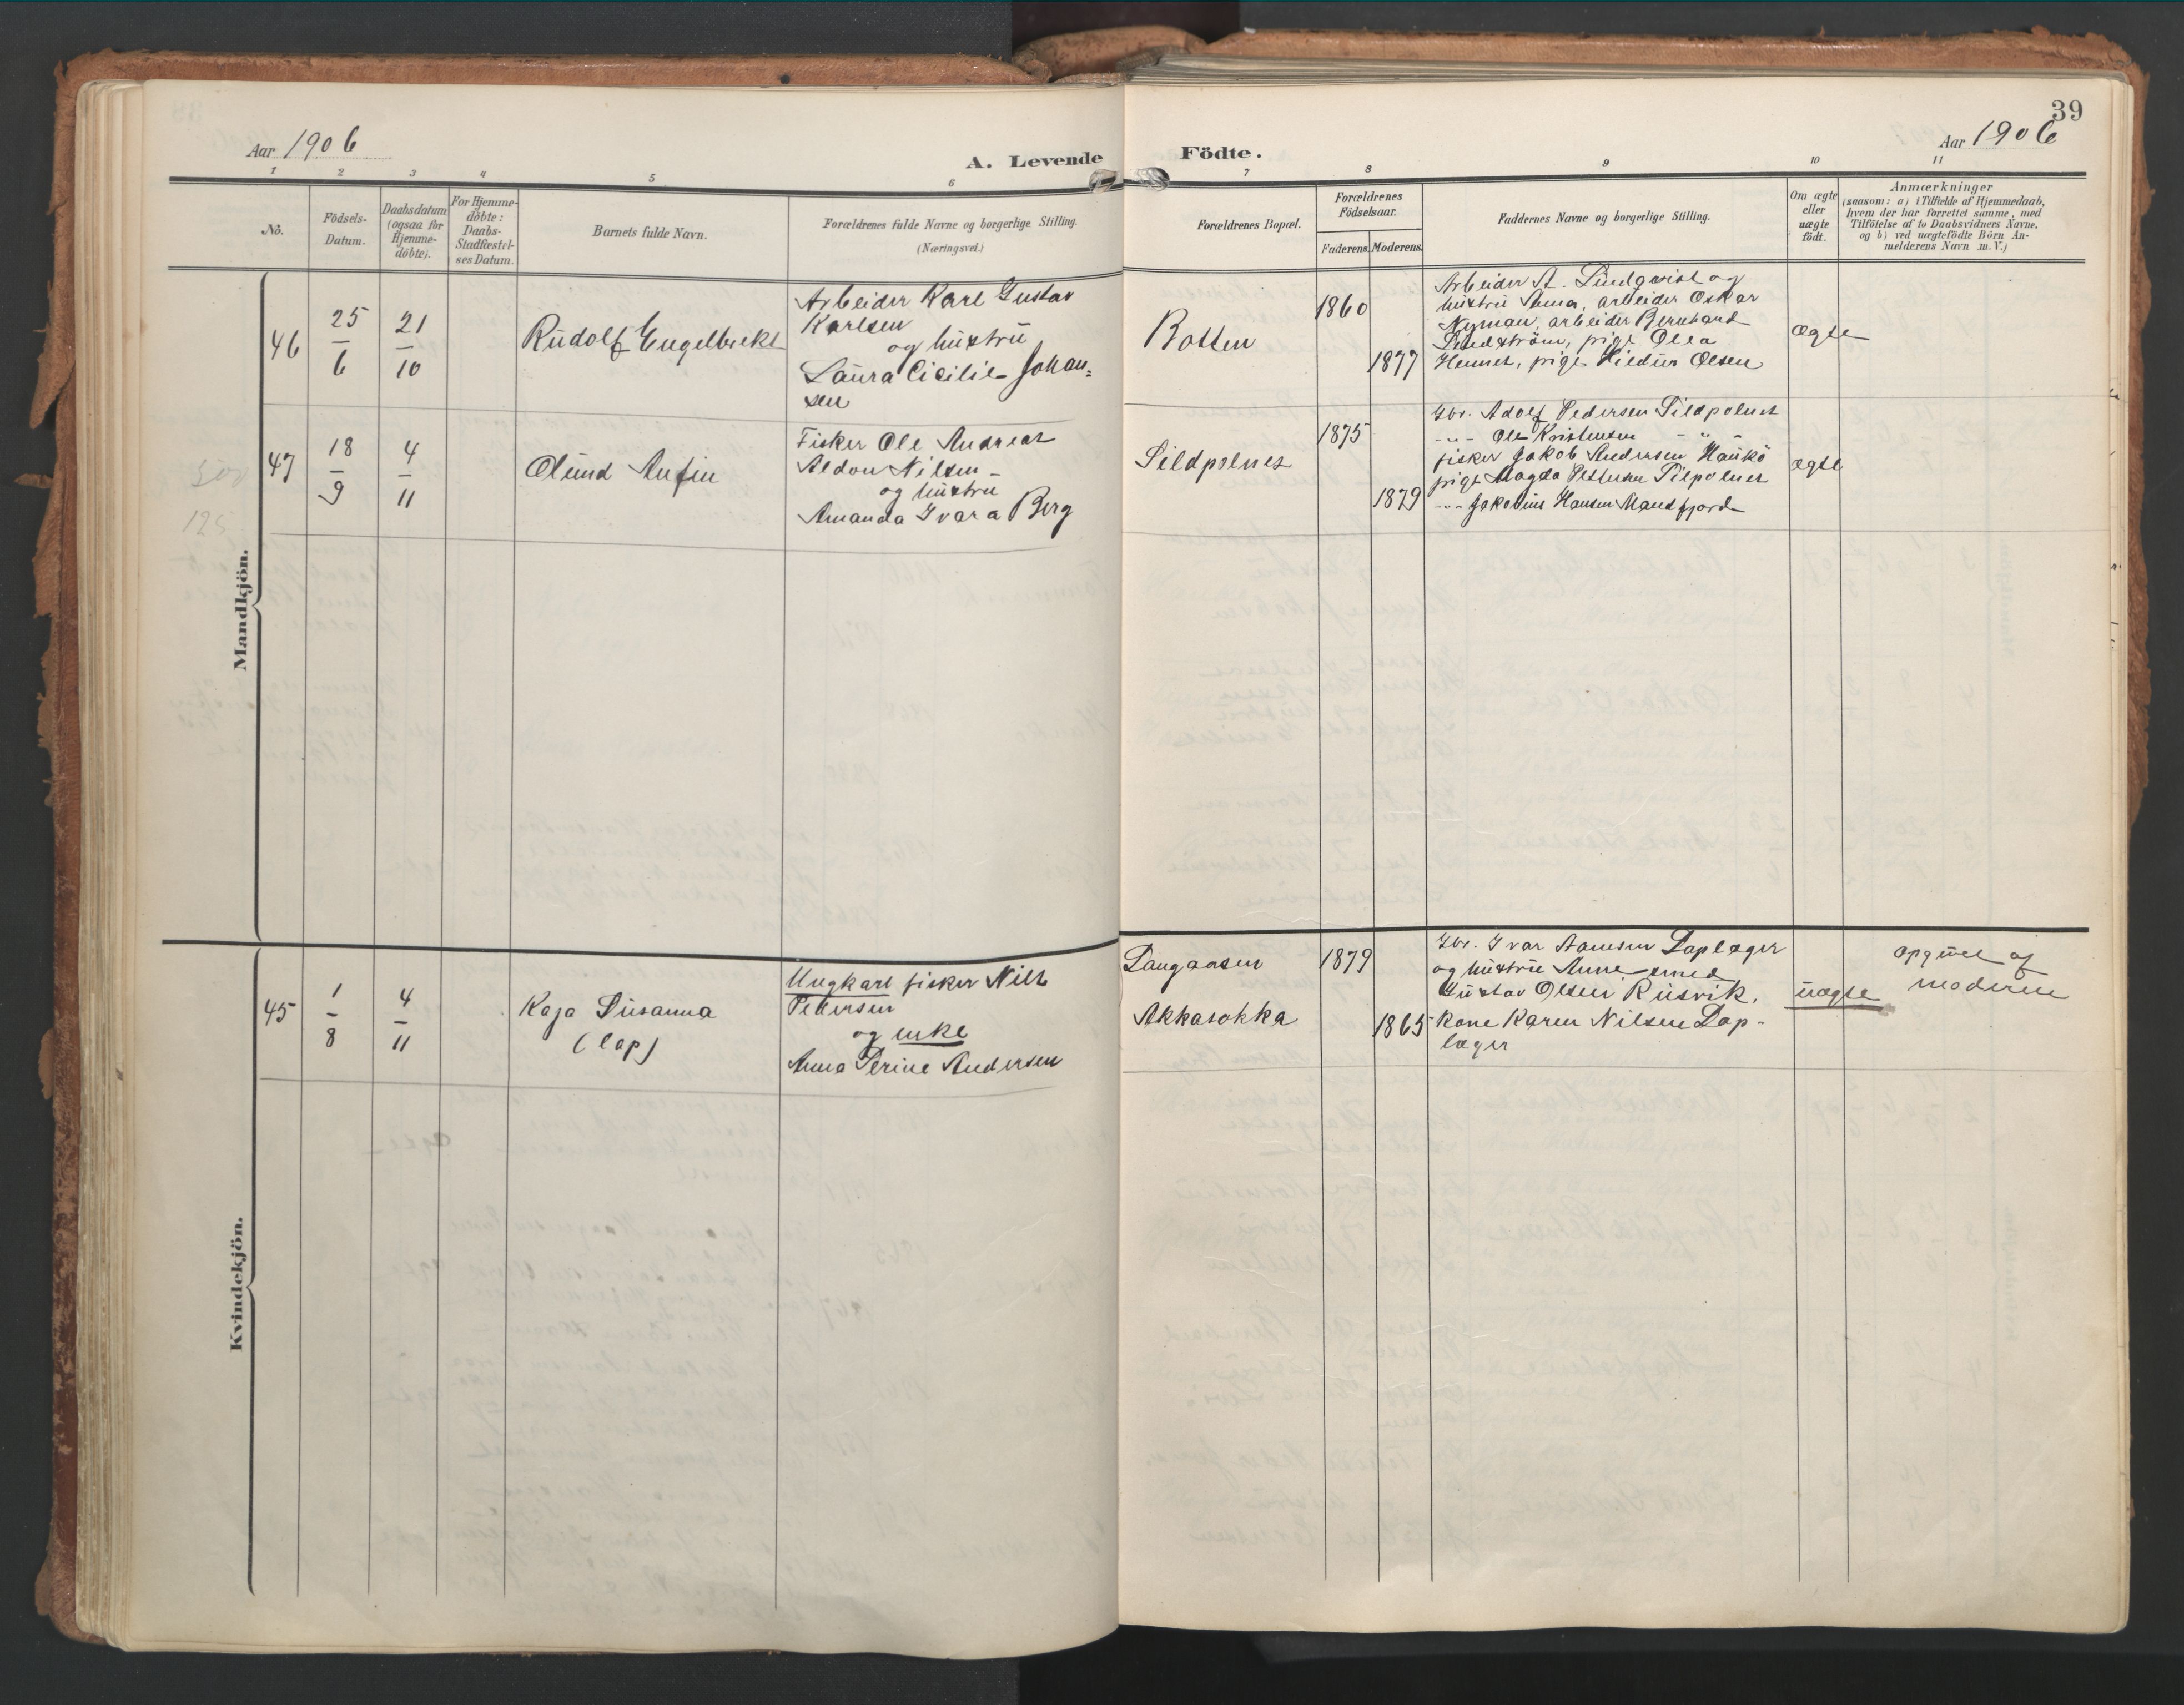 39
Aar 1906
A. Levende Födte.
Aar 1906
1 2 3 4 5 6 7 8 9 10 11
No.
Födsels-
Datum.
Daabsdatum
(ogsaa for
Hjemme-
døbte).
For Hjemme-
døbte:
Daabs-
Stadfæstel-
ses Datum.
Barnets fulde Navn.
Forældrenes fulde Navne og borgerlige Stilling.
(Næringsvei.)
Forældrenes Bopæl.
Forældrenes
Födselsaar.
Faderens. Moderens.
Faddernes Navne og borgerlige Stilling.
Om ægte
eller
uægte
födt.
Anmærkninger
(saasom: a) i Tilfælde af Hjemmedaab,
hvem der har forrettet samme, med
Tilföielse af to Daabsvidners Navne,
og b) ved uægtefödte Börn An-
melderens Navn m. V.)
Mandkjön.
46
25
6
21
10
Rudolf Engelbrekt
Arbeider Karl Gustav
Karlsen
og hustru
Laura Cicilie Johan=
sen
Botten
1860
1877
Arbeider A. Lindqvist og
hustru Anna, arbeider Oskar
Nyman, arbeider Bernhard
Lindström, pige Olea
pige Hildur Olsen
ægte
47
18
9
4
11
Olund Anfin
Fisker Ole Andreas
Aldon Nilsen
og hustru
Amanda Ivara Berg
Sildpolnes
1875
1879
Gbr. Adolf Pedersen Sildpolnes
-"- Ole Kristensen -"-
fisker Jakob Andersen Haukö
pige Magda Pettersen Silpolnes
-"- Hansen
ægte
125
Kvindekjön.
45
1
8
4
11
Kaja Susanna
(lap)
Ungkarl fisker Nils
Pedersen
og enke
Anna Perine Andersen
Langaasen
Akkasokka
1879
1865
Gbr. Ivar Aanesen Laplæger
og hustru Anne
Gustav Olsen Rusvik,
Kone Karen Nilsen Lap-
læger
uægte
opgivet af
moderen